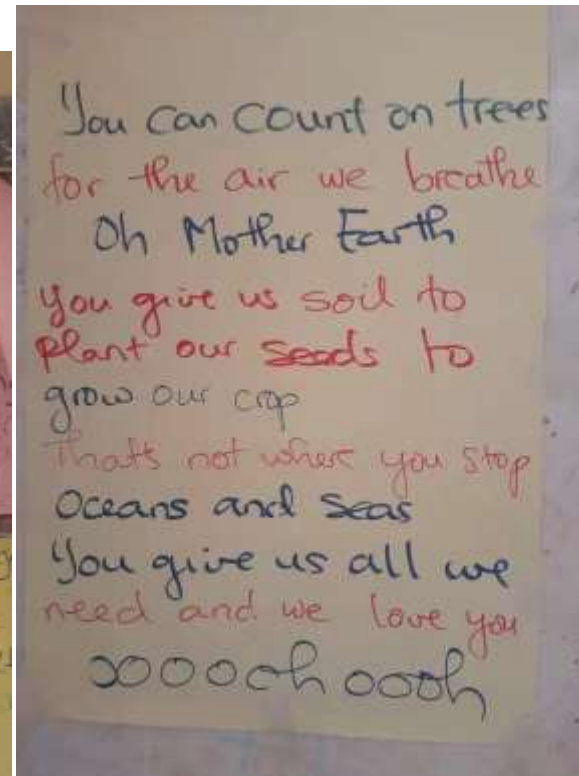 You can count on trees
for the air we breathe
Oh Mother Earth
You give us soil to
Plant our seeds to
grow our crop
Thats not where you stop
Oceans and Seas
You give us all we
need and we love you
ooooch oooh